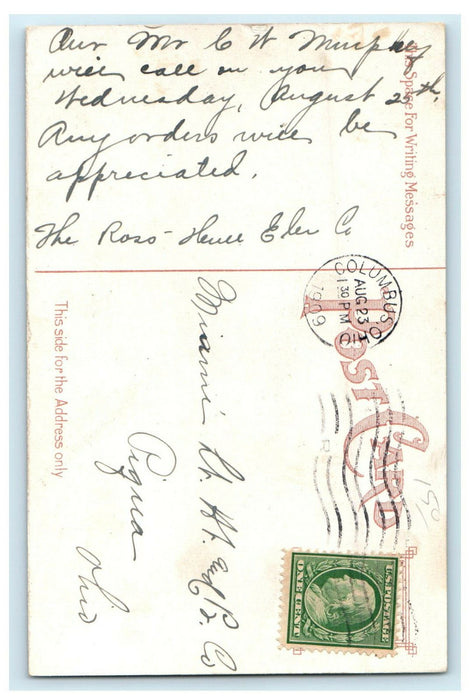 Our Mr C W Murphey
will call on you
Wednesday, August 25th.
Any orders will be
appreciated.
The Ross Elec Co
This Space For Writing Messages
POST CARD
COLUMBUS, O
AUG 23
1 30 PM
1909
This side for the Address only
Miami Lt. Ht. & P. Co
Piqua
Ohio
150
U.S. POSTAGE
ONE CENT